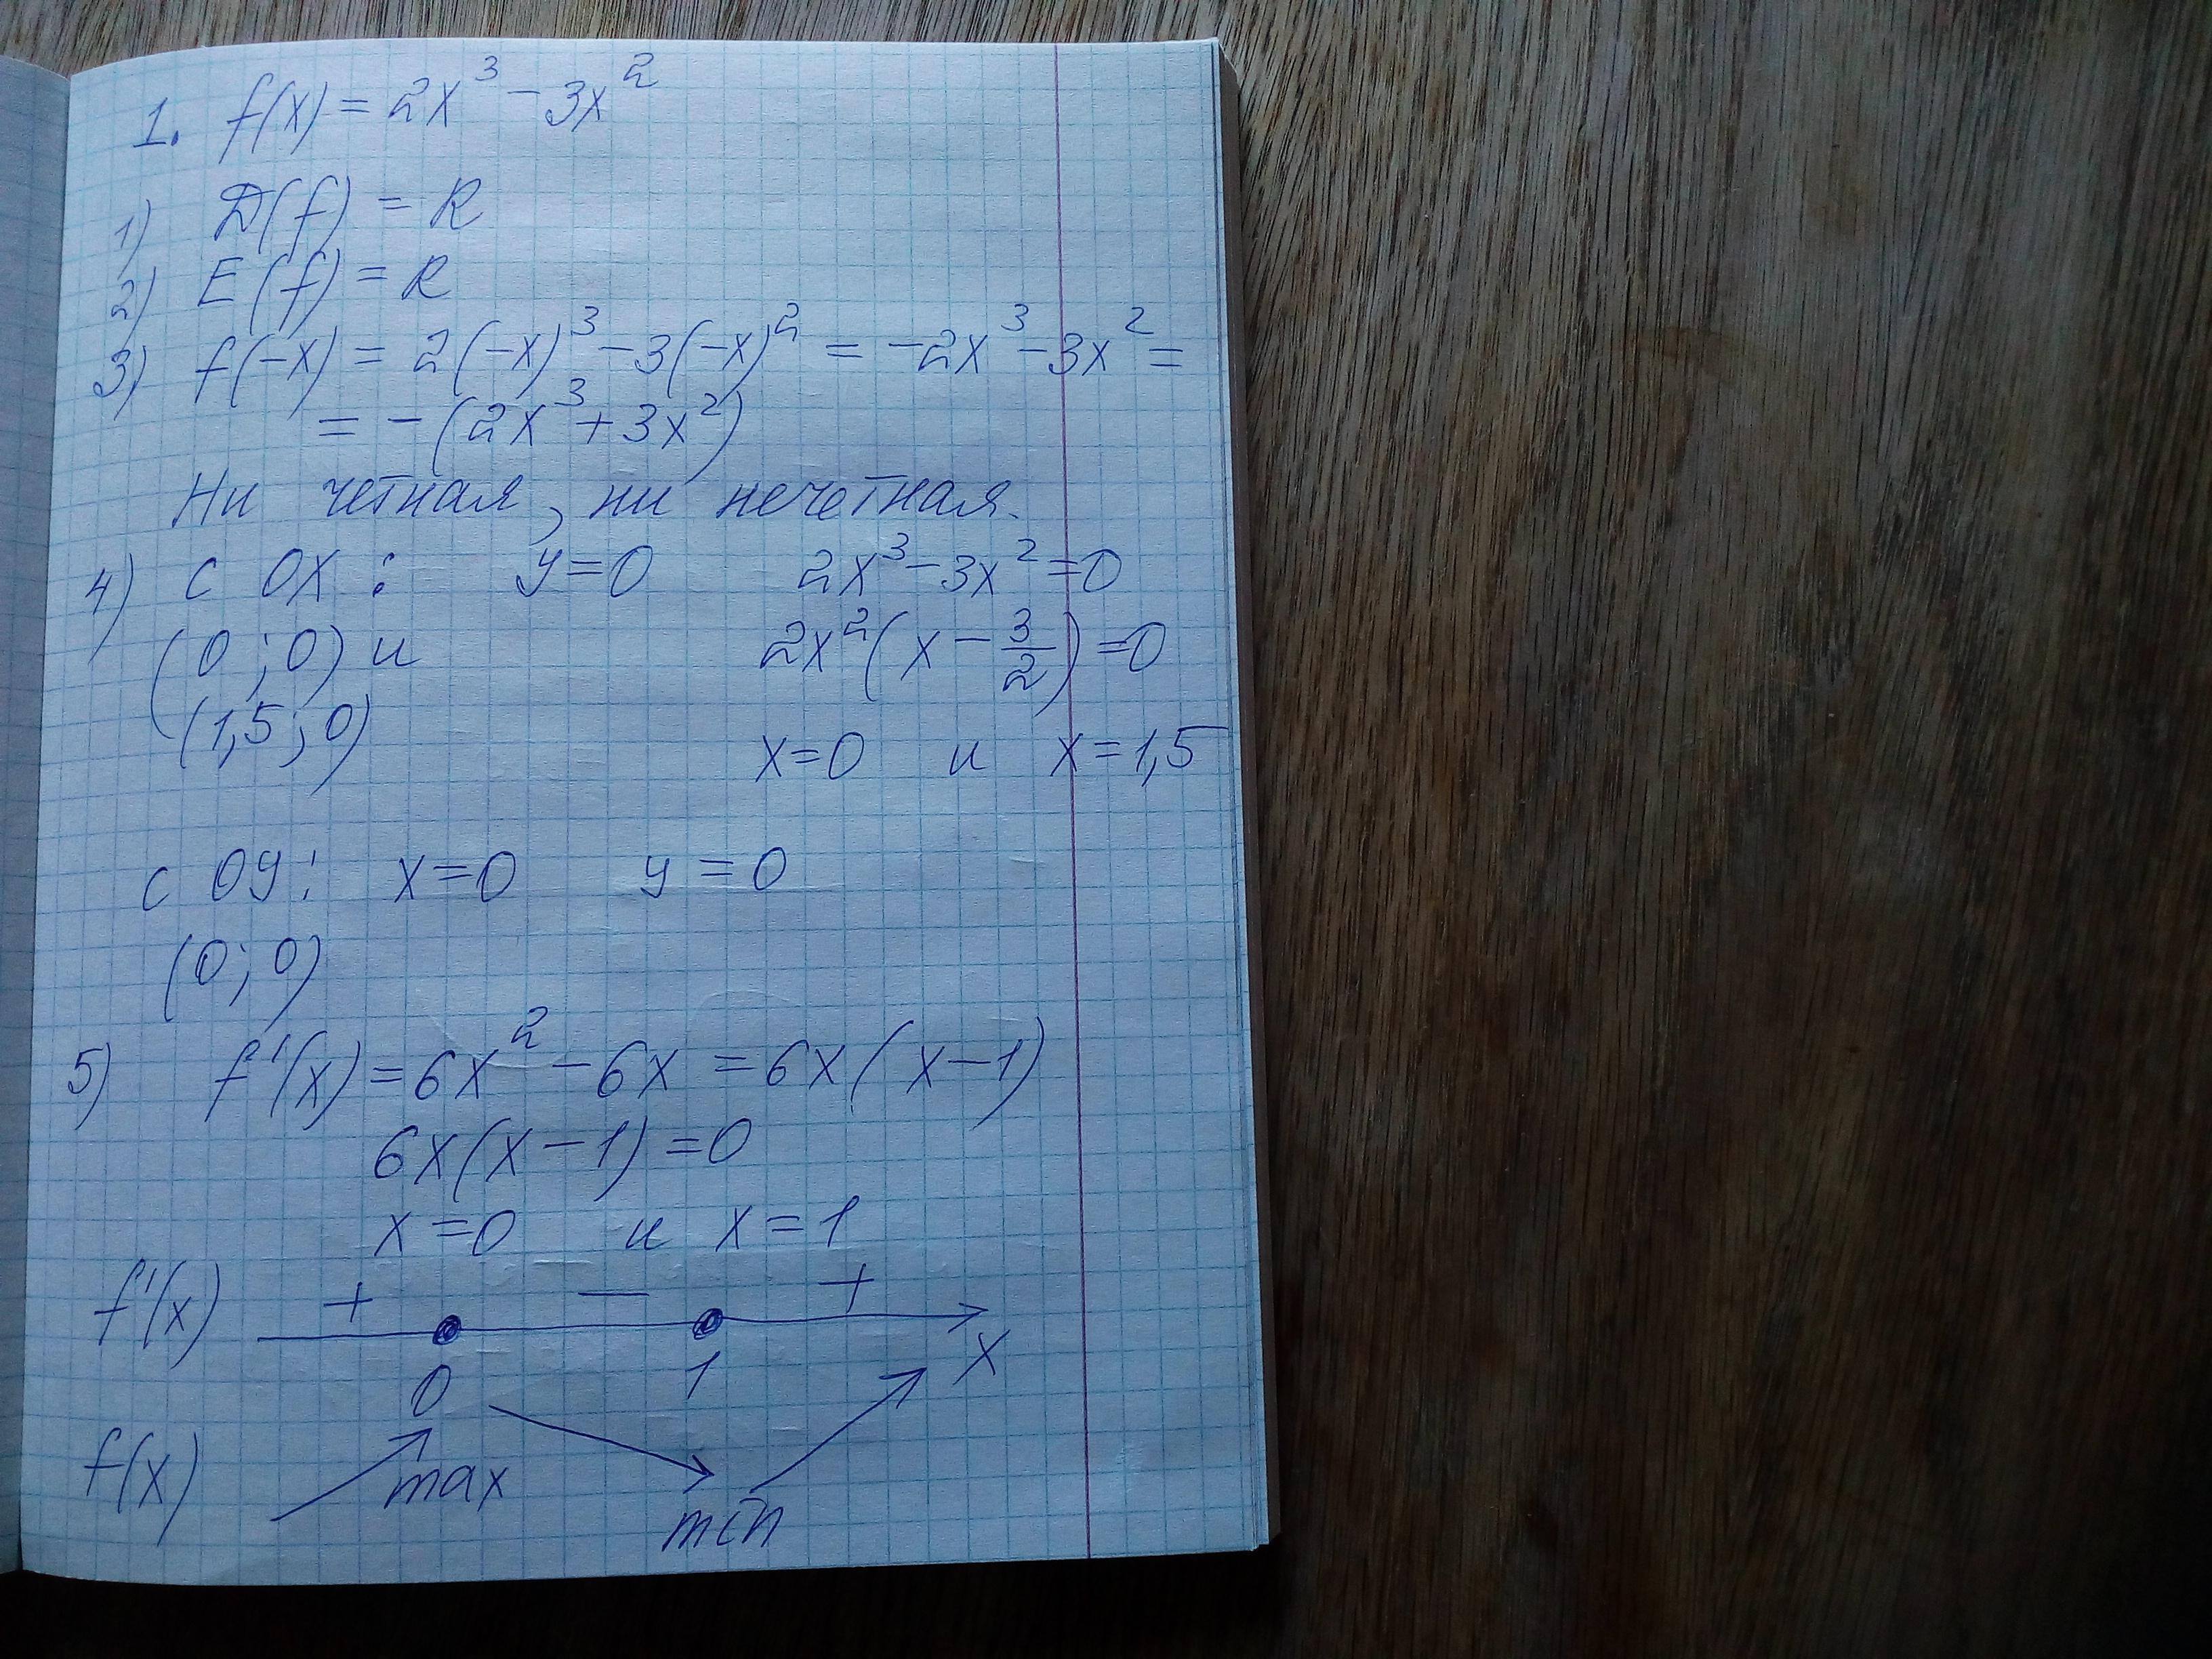 1. f(x) = 2x³ - 3x²
1) D(f) = R
2) E(f) = R
3) f(-x) = 2(-x)³ - 3(-x)² = -2x³ - 3x² =
= -(2x³ + 3x²)
Ни четная, ни нечетная.
4) с OX : y=0 2x³ - 3x² = 0
(0 ; 0) и 2x²(x - 3/2) = 0
(1,5 ; 0)
x=0 и x=1,5
с OY: x=0 y=0
(0; 0)
5) f'(x) = 6x² - 6x = 6x(x-1)
6x(x-1) = 0
x=0 и x=1
f'(x) + — +
0 1 x
f(x) max
min